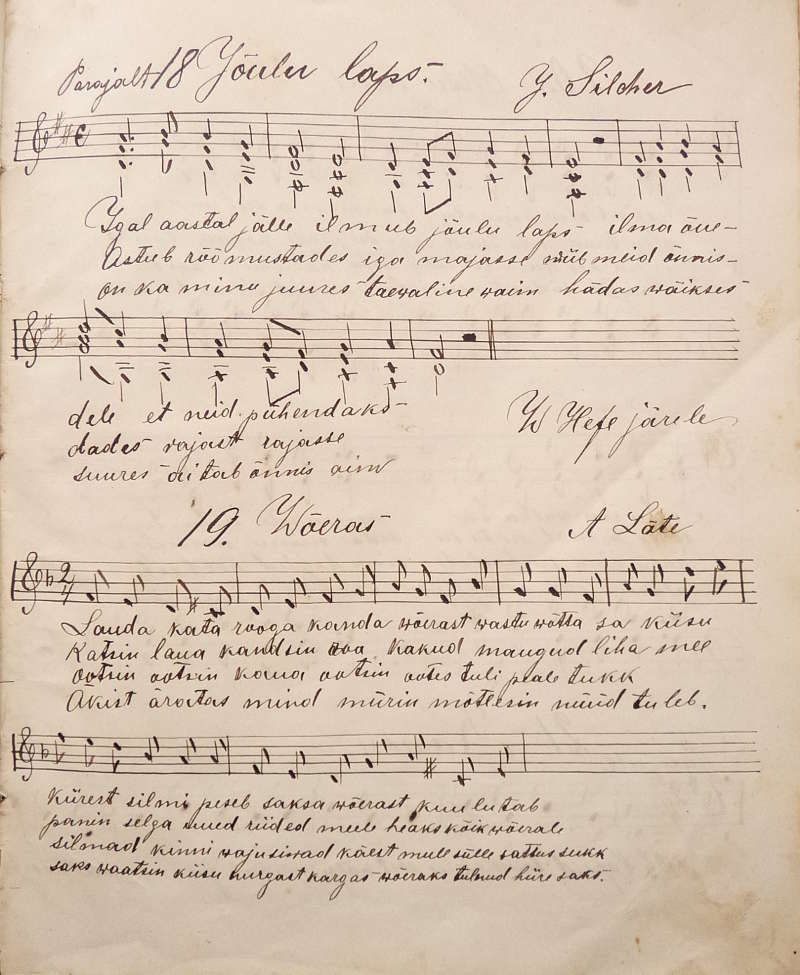 Parajalt 18 Jõulu laps.
Y. Silcher
Igal aastal jälle ilmub jõulu laps ilma õue-
Astub rõõmustades iga majasse wiib meid õnnis-
on ka minu juures taewaline waim hädas wäikses
dele et neid pühendaks
dades rajast rajasse
suures aitab õnnis aim
W Hefe järele
19. Wõeras
A Läte
2/4
Lauda kata rooga kanda wõerast wastu wõtta sa kiisu
Katsin laua kandsin roa kakud mangud liha mee
ootsin ootsin kaua ootsin ootes tuli peale tukk
Äkist äratas mind mürin mõtlesin nüüd tuleb.
Kürest silmi peseb saksa wõerast kuulutab
panin selga uued riided meele heaks kõik wõerale
silmad kinni wajusiwad käest mulle sülle sattus sukk
saks waatsin kiisu nurgast kargas wõeraks tulnud hiire saks.